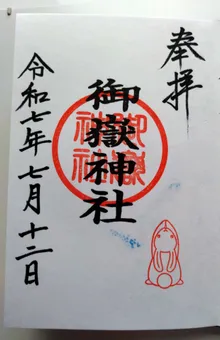 奉拝
御嶽神社
御嶽
神社
令和七年七月十二日